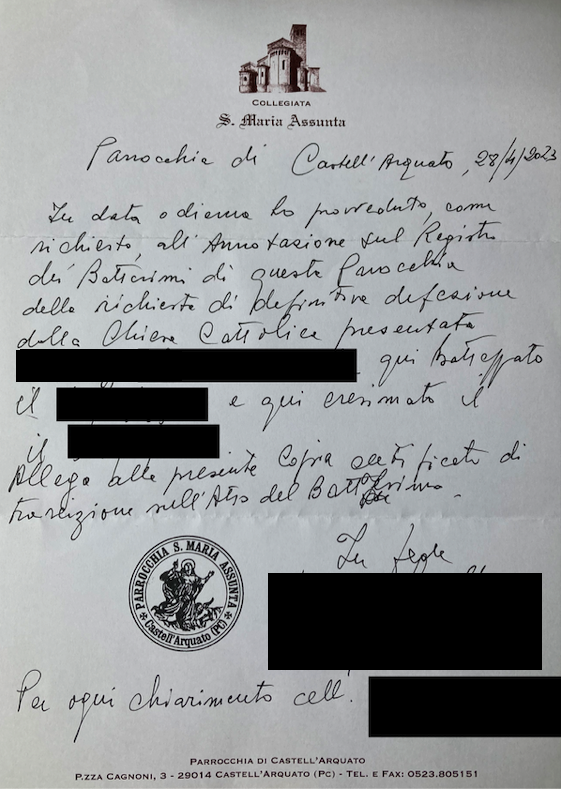 COLLEGIATA
S. Maria Assunta
Parrocchia di Castell'Arquato, 28/4/2023
In data odierna ho provveduto, come
richiesto, all'Annotazione sul Registro
dei Battesimi di questa Parrocchia
della richiesta di definitiva defezione
dalla Chiesa Cattolica presentata
qui battezzato
il e qui cresimato il
il
Allego alla presente Copia certificato di
trascrizione sull'Atto del Battesimo.
In fede
PARROCCHIA S. MARIA ASSUNTA
Castell'Arquato (PC)
Per ogni chiarimento cell.
PARROCCHIA DI CASTELL'ARQUATO
P.ZZA CAGNONI, 3 - 29014 CASTELL'ARQUATO (PC) - TEL. E FAX: 0523.805151